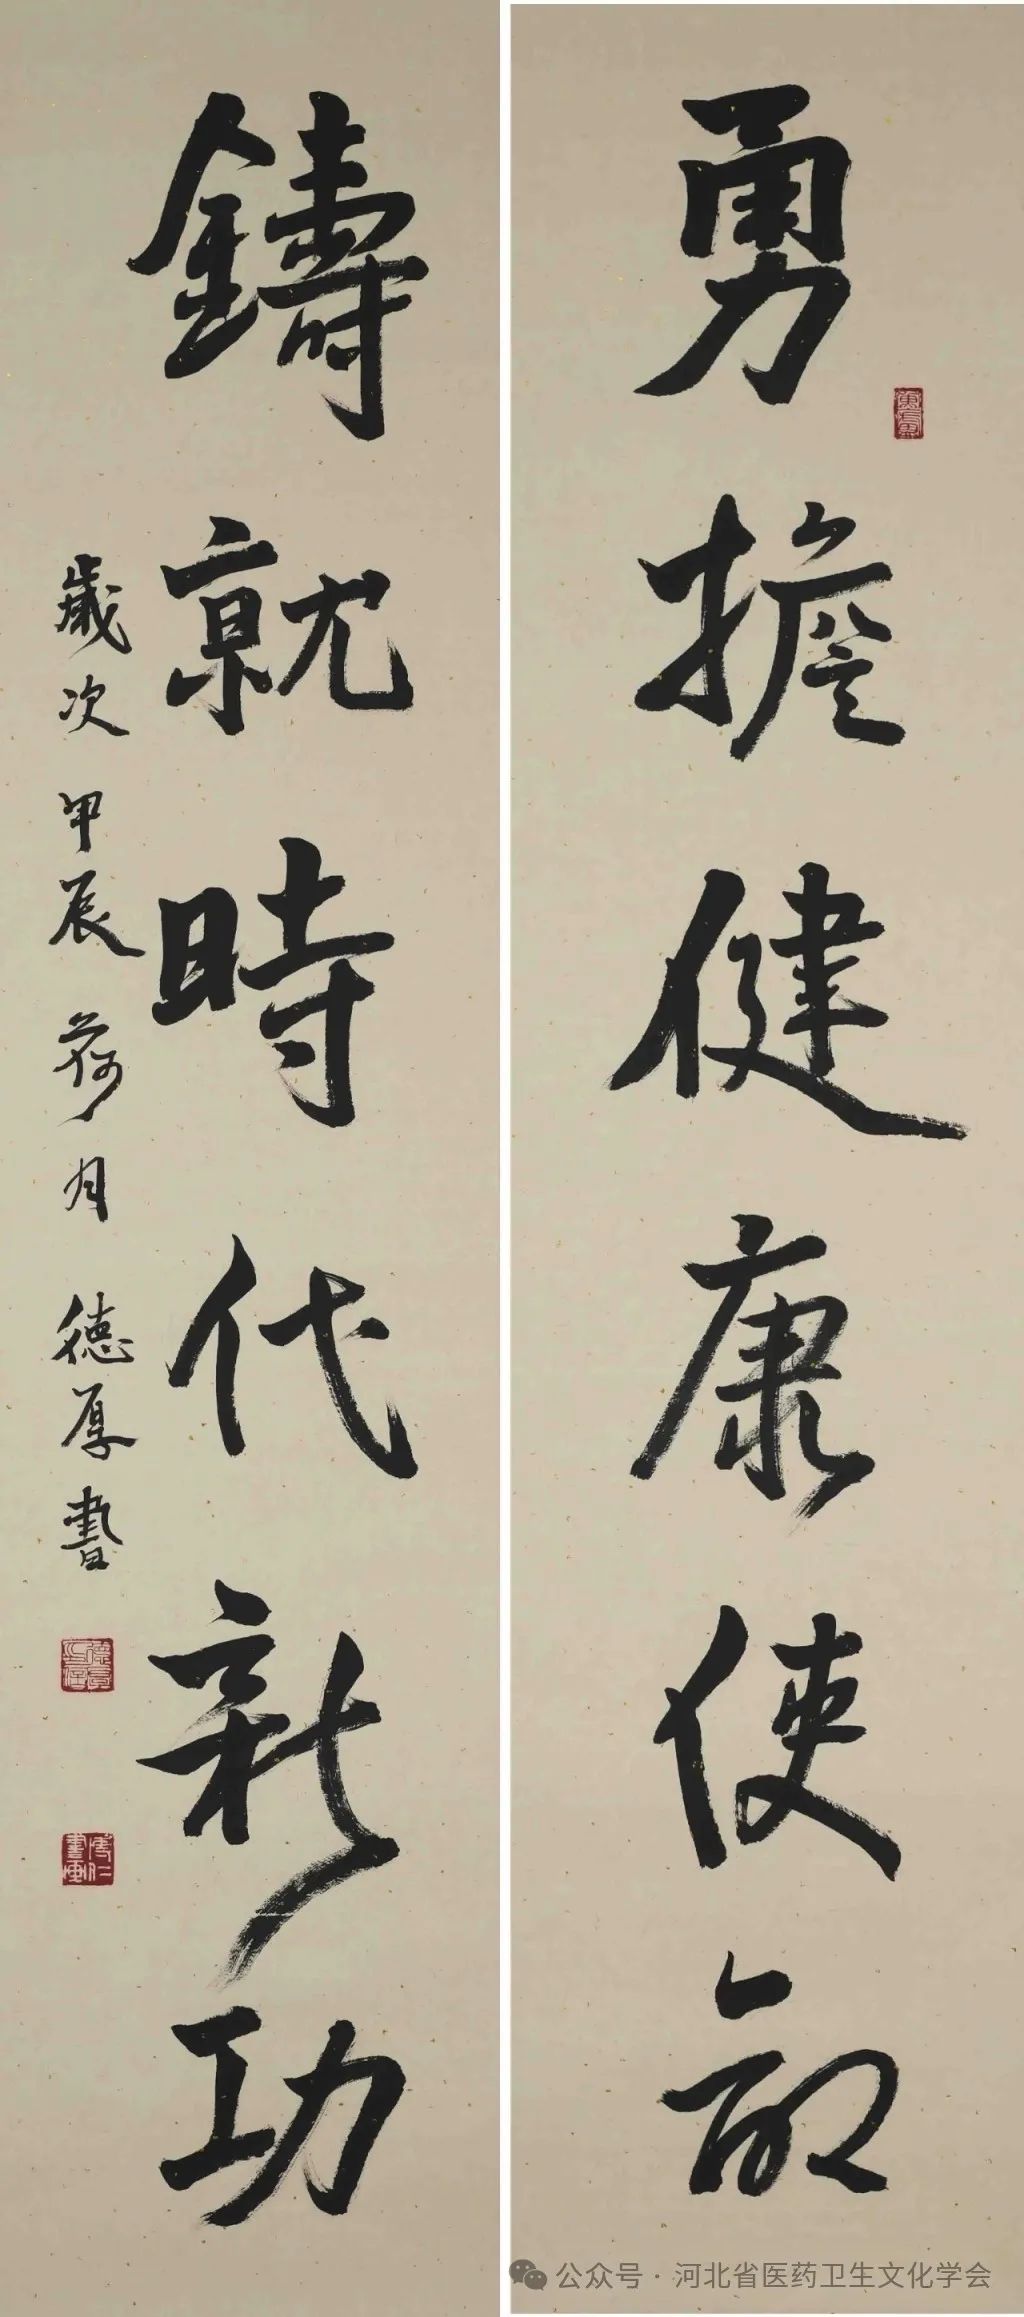 勇擔健康使命
鑄就時代新功
歲次甲辰荷月德厚書
公众号·河北省医药卫生文化学会